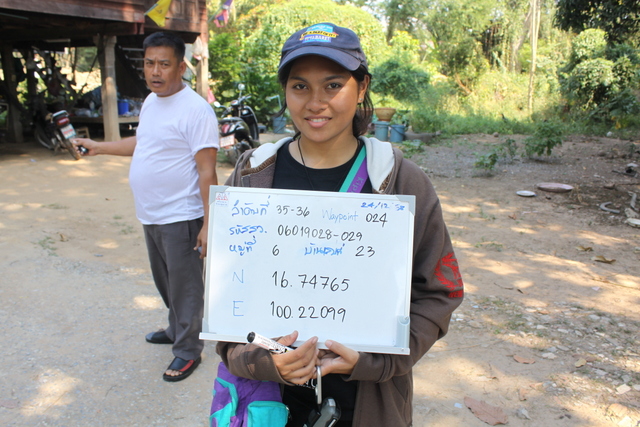 24/12/52
ลำดับที่ 35-36 Waypoint 024
รหัสรว. 06019028-029
หมู่ที่ 6 บ้านเลขที่ 23
N 16.74765
E 100.22099